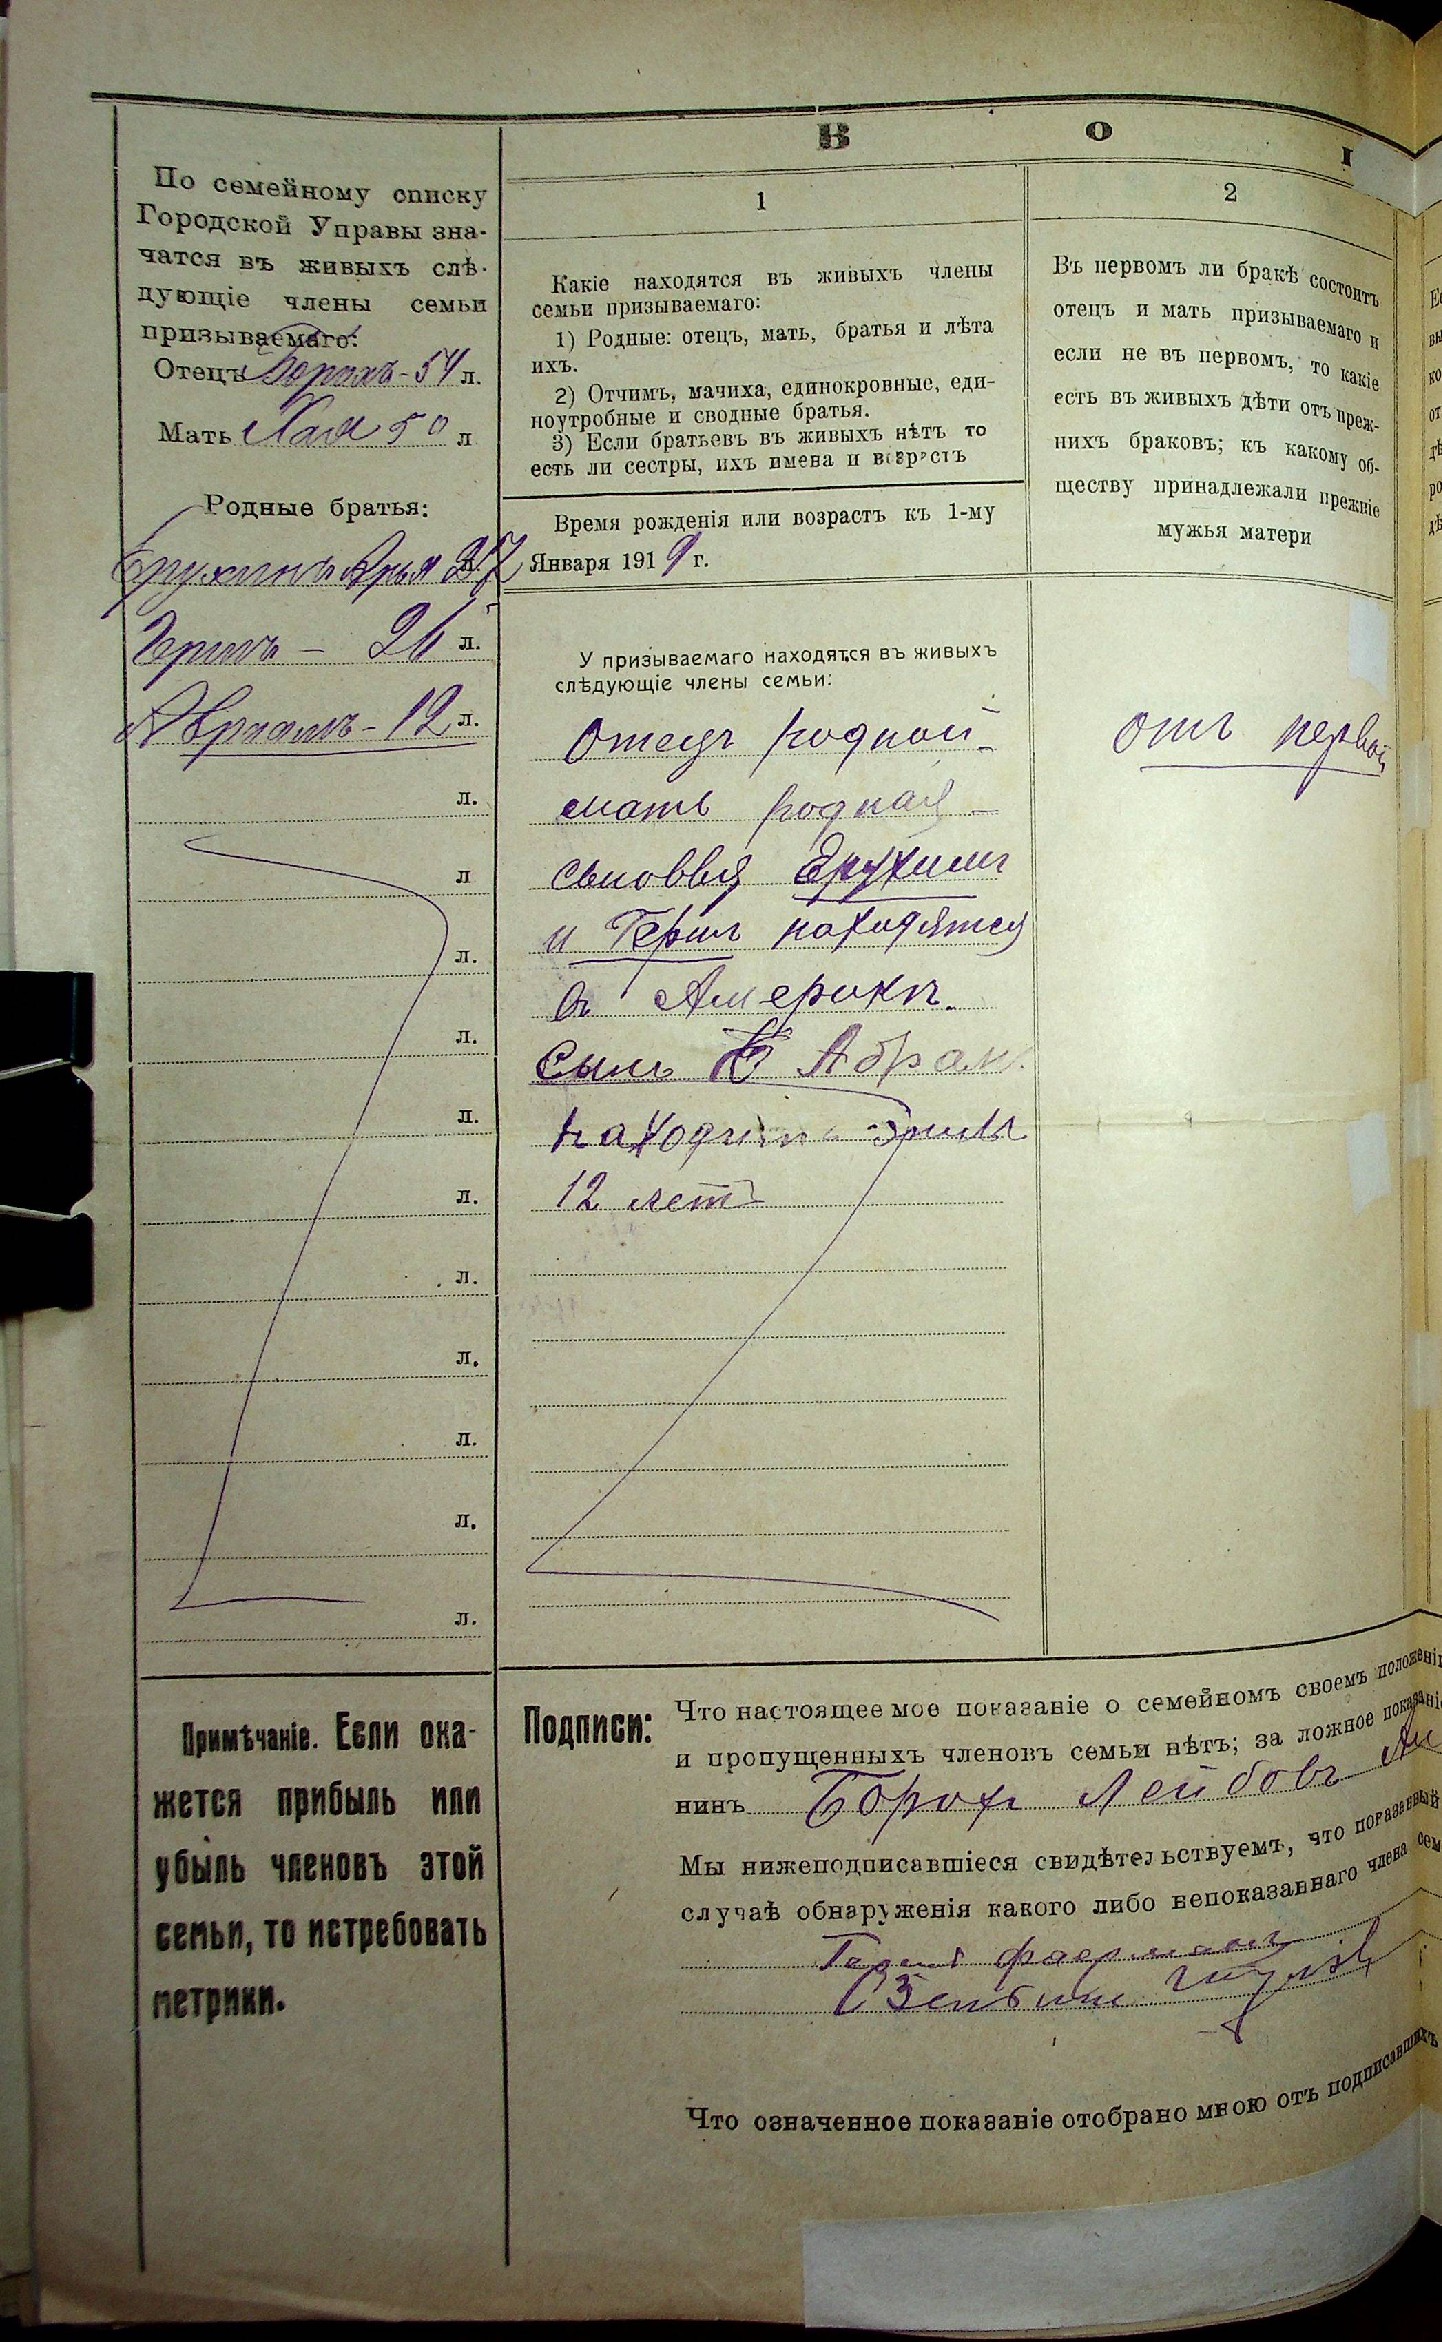 В О І
По семейному списку
Городской Управы зна-
чатся въ живыхъ слѣ-
дующіе члены семьи
призываемаго:
Отецъ Борохъ - 54 л.
Мать Хая 50 л
Родные братья:
27
Герить - 26 л.
Авраамъ - 12 л.
л.
л
л.
л.
л.
л.
л.
л.
л.
л.
л.
Примѣчаніе. Если ока-
жется прибыль или
убыль членовъ этой
семьи, то истребовать
метрики.
1
Какіе находятся въ живыхъ члены
семьи призываемаго:
1) Родные: отецъ, мать, братья и лѣта
ихъ.
2) Отчимъ, мачиха, единокровные, еди-
ноутробные и сводные братья.
3) Если братьевъ въ живыхъ нѣтъ то
есть ли сестры, ихъ имена и возрастъ
Время рожденія или возрастъ къ 1-му
Января 1919 г.
У призываемаго находятся въ живыхъ
слѣдующіе члены семьи:
Отецъ родной -
мать родная -
сыновья
и находятся
въ Америкъ.
Сынъ Абрам
12 лет
2
Въ первомъ ли бракѣ состоитъ
отецъ и мать призываемаго и
если не въ первомъ, то какіе
есть въ живыхъ дѣти отъ преж-
нихъ браковъ; къ какому об-
ществу принадлежали прежніе
мужья матери
отъ первой
Подписи:
Что настоящее мое показаніе о семейномъ своемъ положеніи
и пропущенныхъ членовъ семьи нѣтъ; за ложное показаніе
нинъ Борохъ Лейбовъ
Мы нижеподписавшіеся свидѣтельствуемъ, что показанный
случаѣ обнаруженія какого либо непоказаннаго члена сем
Что означенное показаніе отобрано мною отъ подписавшихъ